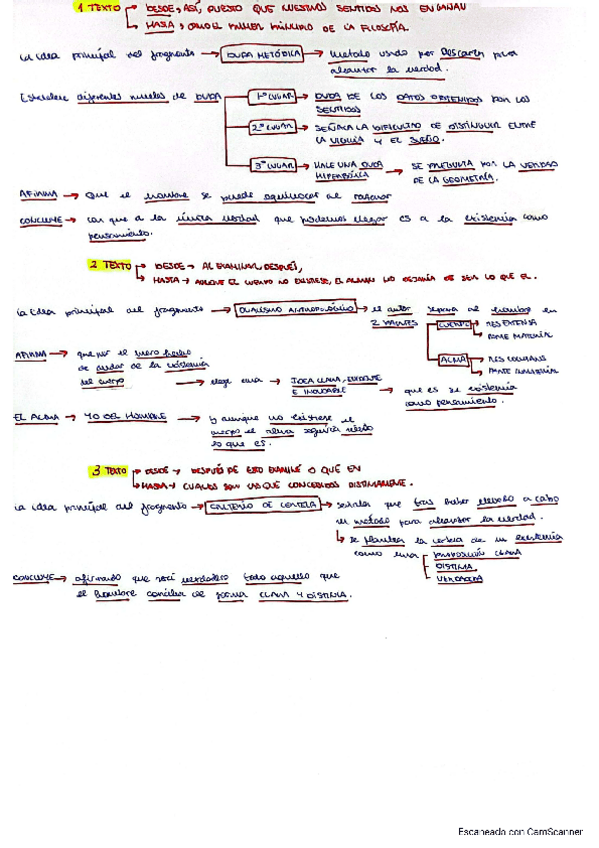 1 TEXTO → DESDE → ASÍ, PUESTO QUE NUESTROS SENTIDOS NOS ENGAÑAN
→ HASTA → COMO EL PRIMER PRINCIPIO DE LA FILOSOFÍA.
La idea principal del fragmento → DUDA METÓDICA → Método usado por Descartes para
alcanzar la verdad.
Establece diferentes niveles de DUDA
1º LUGAR → DUDA DE LOS DATOS OBTENIDOS POR LOS
SENTIDOS
2º LUGAR → SEÑALA LA DIFICULTAD DE DISTINGUIR ENTRE
LA VIGILIA Y EL SUEÑO.
3º LUGAR → HACE UNA DUDA
HIPERBÓLICA → SE PREGUNTA POR LA VERDAD
DE LA GEOMETRÍA.
AFIRMA → Que el hombre se puede equivocar al razonar
CONCLUYE → con que a la única verdad que podemos llegar es a la existencia como
pensamiento.
2 TEXTO → DESDE → AL EXAMINAR, DESPUÉS,
→ HASTA → AUNQUE EL CUERPO NO EXISTIESE, EL ALMA NO DEJARÍA DE SER LO QUE ES.
La idea principal del fragmento → DUALISMO ANTROPOLÓGICO → el autor separa al hombre en
2 PARTES
CUERPO → RES EXTENSA
→ PARTE MATERIAL
ALMA → RES COGITANS
→ PARTE
AFIRMA → que por el mero hecho
de dudar de la existencia
del cuerpo → llega a una → IDEA CLARA, EVIDENTE
E INDUDABLE → que es su existencia
como pensamiento.
EL ALMA → YO DEL HOMBRE → y aunque no existiese el
cuerpo el alma seguiría siendo
lo que es.
3 TEXTO → DESDE → DESPUÉS DE ESTO EXAMINÉ LO QUE EN
→ HASTA → CUALES SON LAS QUE CONCEBIMOS DISTINTAMENTE.
La idea principal del fragmento → CRITERIO DE CERTEZA → señala que tras haber llevado a cabo
un método para alcanzar la verdad.
→ se plantea la certeza de su existencia
como una PROPOSICIÓN CLARA
DISTINTA
VERDADERA
CONCLUYE → afirmando que será verdadero todo aquello que
el hombre concibe de forma CLARA Y DISTINTA.
Escaneado con CamScanner